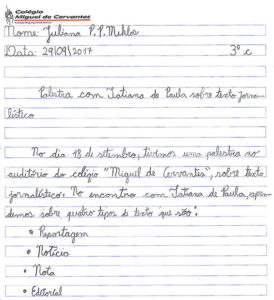 Colégio
Miguel de Cervantes
Nome: Juliana P. P. Miklos
Data: 29/09/2017 3º c
Palestra com Tatiana de Paula sobre texto jorna-
lístico
No dia 18 de setembro, tivemos uma palestra no
auditório do colégio "Miguel de Cervantes", sobre texto
jornalístico. No encontro com Tatiana de Paula, apren-
demos sobre quatro tipos de texto que são:
• Reportagem
• Notícia
• Nota
• Editorial